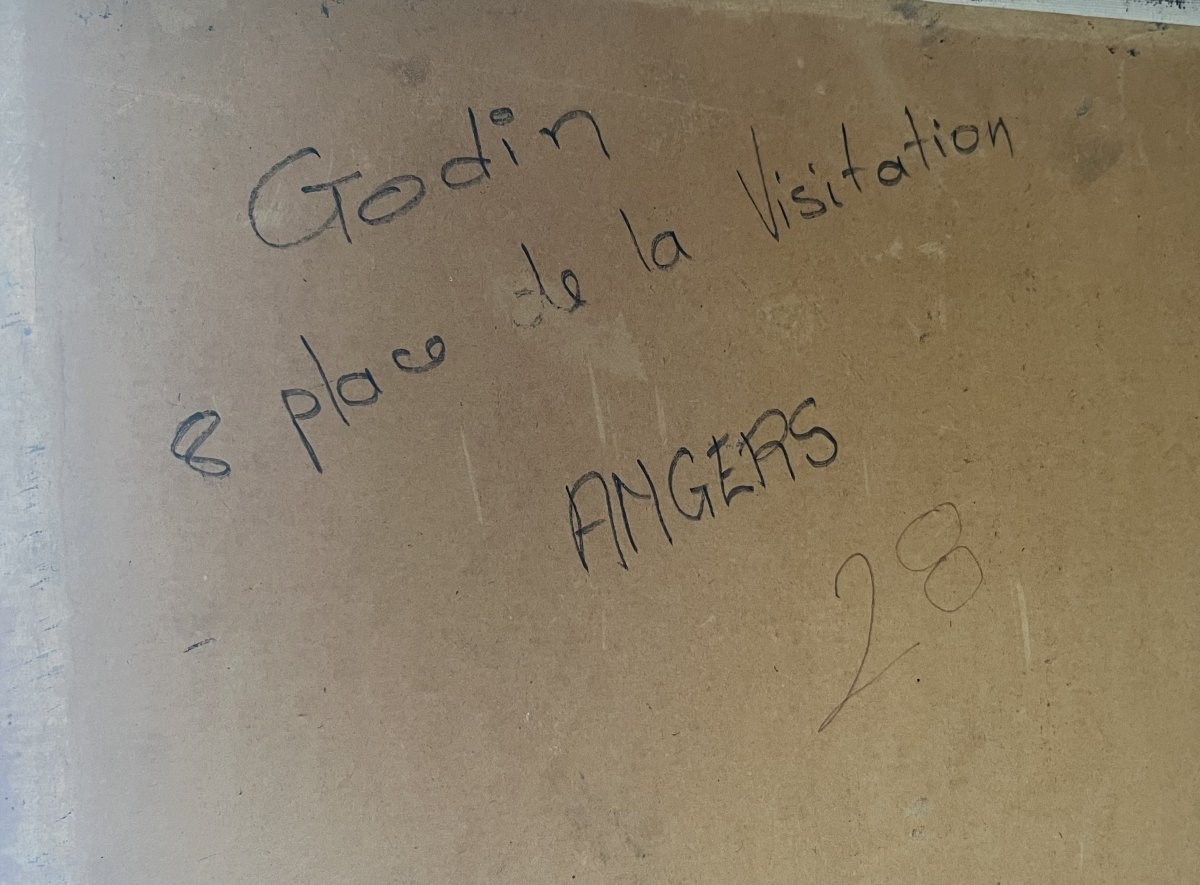 Godin
8 place de la Visitation
ANGERS
28